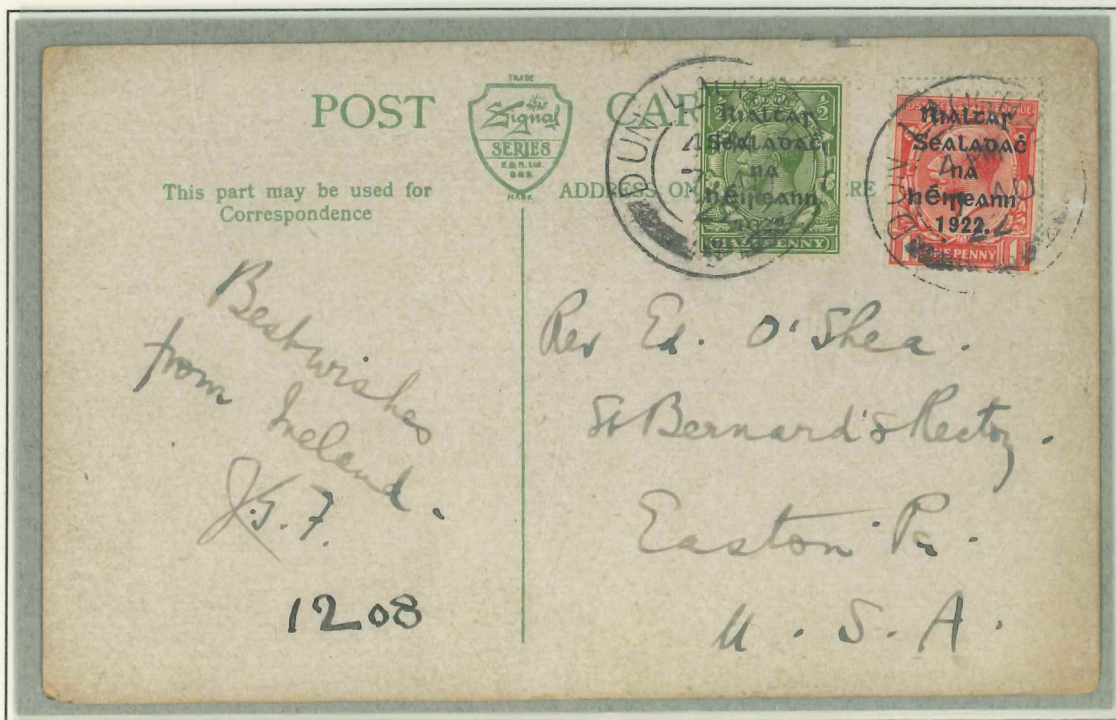 POST CARD
TRADE
Signal
SERIES
E. & S. Ltd.
MARK
This part may be used for
Correspondence
ADDRESS ON
HALFPENNY
Rialtar
Sealadaċ
na
hÉireann
1922
Rialtar
Sealadaċ
na
hÉireann
1922.
ONE PENNY
Best wishes
from Ireland.
J.G.F.
1208
Rev Ed. O'Shea.
St Bernard's Rectory.
Easton Pa.
U.S.A.